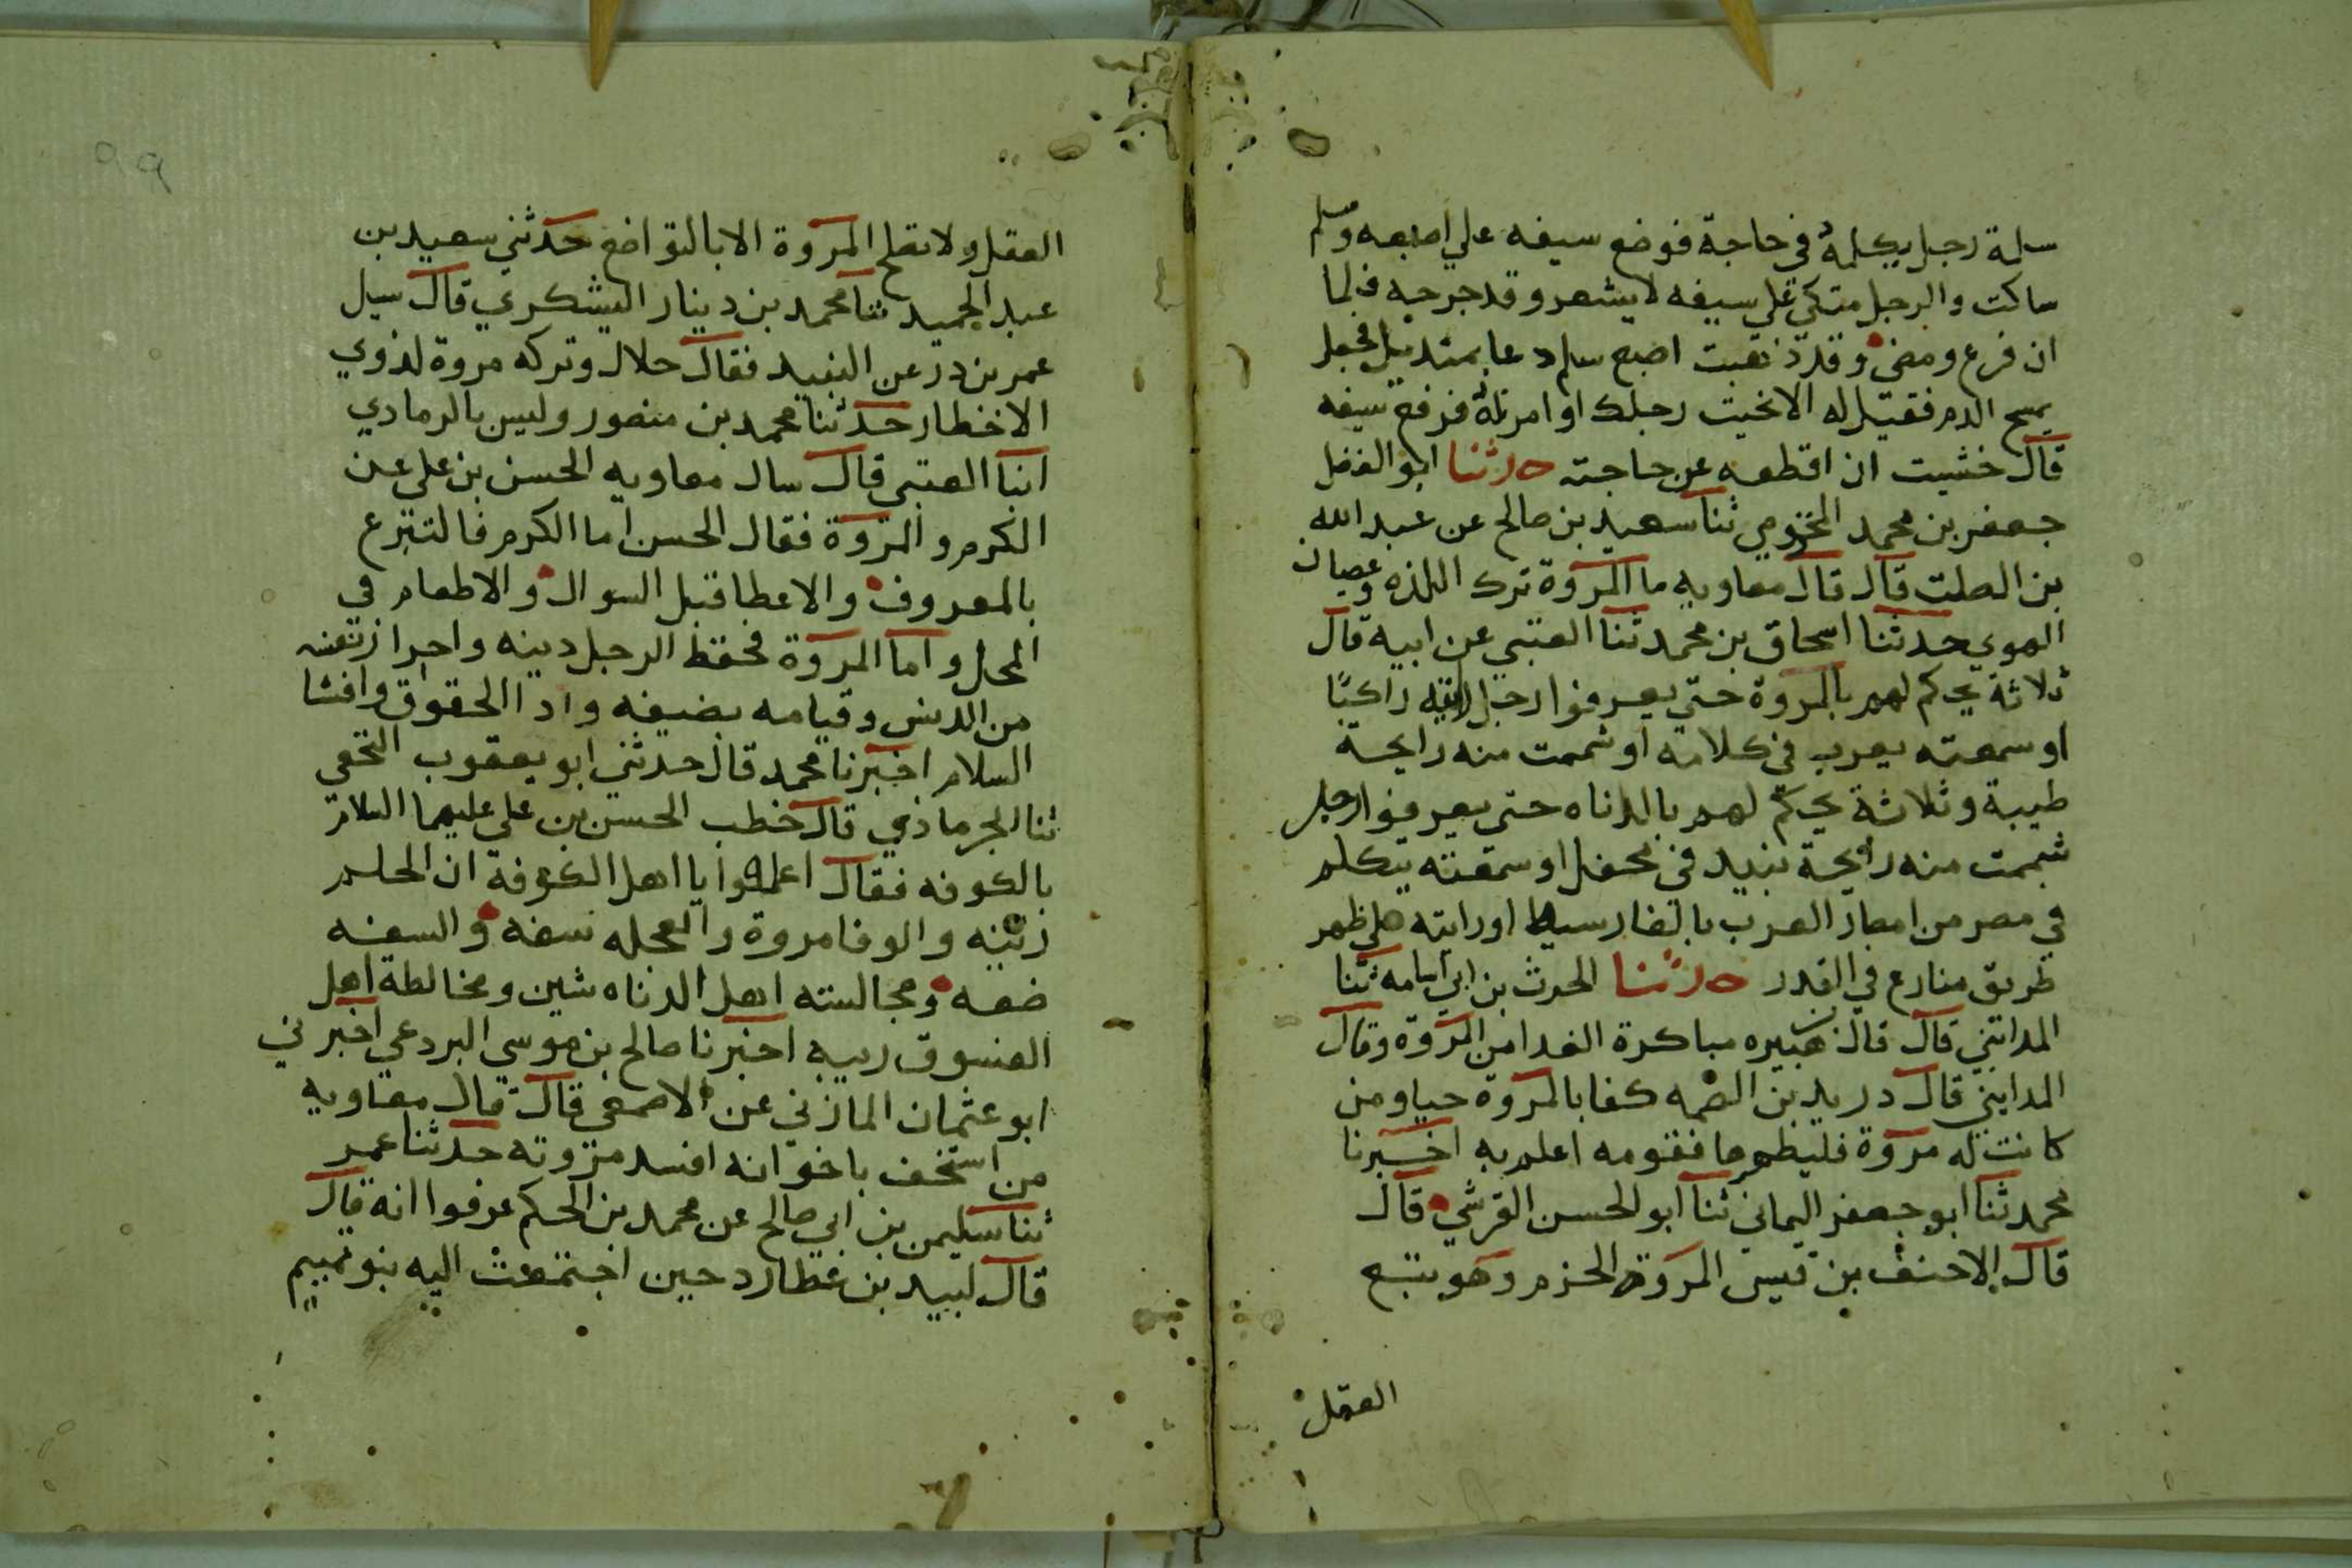 سلمة رجل يكلمه في حاجة فوضع سيفه علي اصبعه وسلم
ساكت والرجل متكي علي سيفه لا يشعر وقد جرحه فلما
ان فرع ومضى وقد نقبت اصبع سلم دعا بمنديل فجعل
يمسح الدم فقيل له الا نحيت رجلك او امرته فرفع سيفه
قال خشيت ان اقطعه عن حاجته حدثنا ابو الفضل
جعفر بن محمد المخزومي ثنا سعيد بن صالح عن عبد الله
بن الصلت قال قال معاويه ما المروة ترك اللذه وعصيان
الهوي حدثنا اسحاق بن محمد ثنا العتبي عن ابيه قال
ثلاثة يحكم لهم بالمروة حتي يعرفوا رجل رايته راكبًا
او سمعته يعرب في كلامه او شممت منه رايحة
طيبة وثلاثة يحكم لهم بالدناه حتى يعرفوا رجل
شممت منه رايحة نبيد في محفل او سمعته يتكلم
في مصر من امصار العرب بالفارسيه او رايته علي ظهر
طريق ينازع في القدر حدثنا الحرث بن ابي اسامه ثنا
المدائني قال قال بن هبيره مباكرة الغدا من المروة وقال
المدايني قال دريد بن الصمه كفا بالمروة حيا ومن
كانت له مروة فليظهرها فقومه اعلم به اخبرنا
محمد ثنا ابو جعفر اليماني ثنا ابو الحسن القرشي قال
قال الاحنف بن قيس المروة الحزم وهو يتبع
العقل
العقل ولا تصلح المروة الا بالتواضع حدثني سعيد بن
عبد الحميد ثنا محمد بن دينار اليشكري قال سيل
عمر بن در عن النبيد فقال حلال وتركه مروة لذوي
الاخطار حدثنا محمد بن منصور وليس بالرمادي
انبا العتبي قال سال معاويه الحسن بن علي عن
الكرم والمروة فقال الحسن اما الكرم فالتبرع
بالمعروف والاعطا قبل السوال والاطعام في
المحل واما المروة فحفظ الرجل دينه واحرا ز نفسه
من الدنس وقيامه بضيفه وادا الحقوق وافشا
السلام اخبرنا محمد قال حدثني ابو يعقوب النخعي
ثنا الجرماذي قال خطب الحسن بن علي عليهما السلام
بالكوفه فقال اعلموا يا اهل الكوفة ان الحلم
زينه والوفا مروة والعجله سفه والسفه
ضعه ومجالسته اهل الدناه شين ومخالطة اهل
الفسوق ريبه اخبرنا صالح بن موسي البردعي اخبرني
ابو عثمان المازني عن الاصمعي قال قال معاويه
من استخف باخوانه افسد مروته حدثنا عمر
ثنا سليمن بن ابي صالح عن محمد بن الحكم عرفوا انه قال
قال لبيد بن عطارد حين اجتمعت اليه بنو تميم